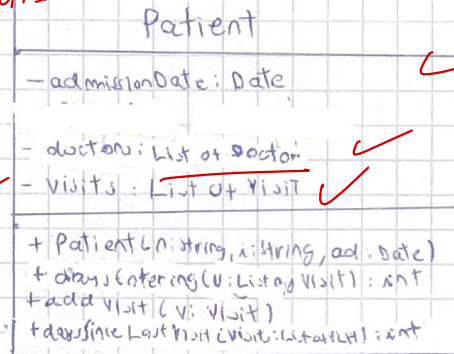 Patient
- admissionDate : Date
- doctor : List of Doctor
- visits : List of Visit
+ Patient(n:String, i:String, ad : Date)
+ Entering(v: List of Visit) : int
+ add Visit (v: Visit)
+ days since Last Visit (visit: List of Visit) : int